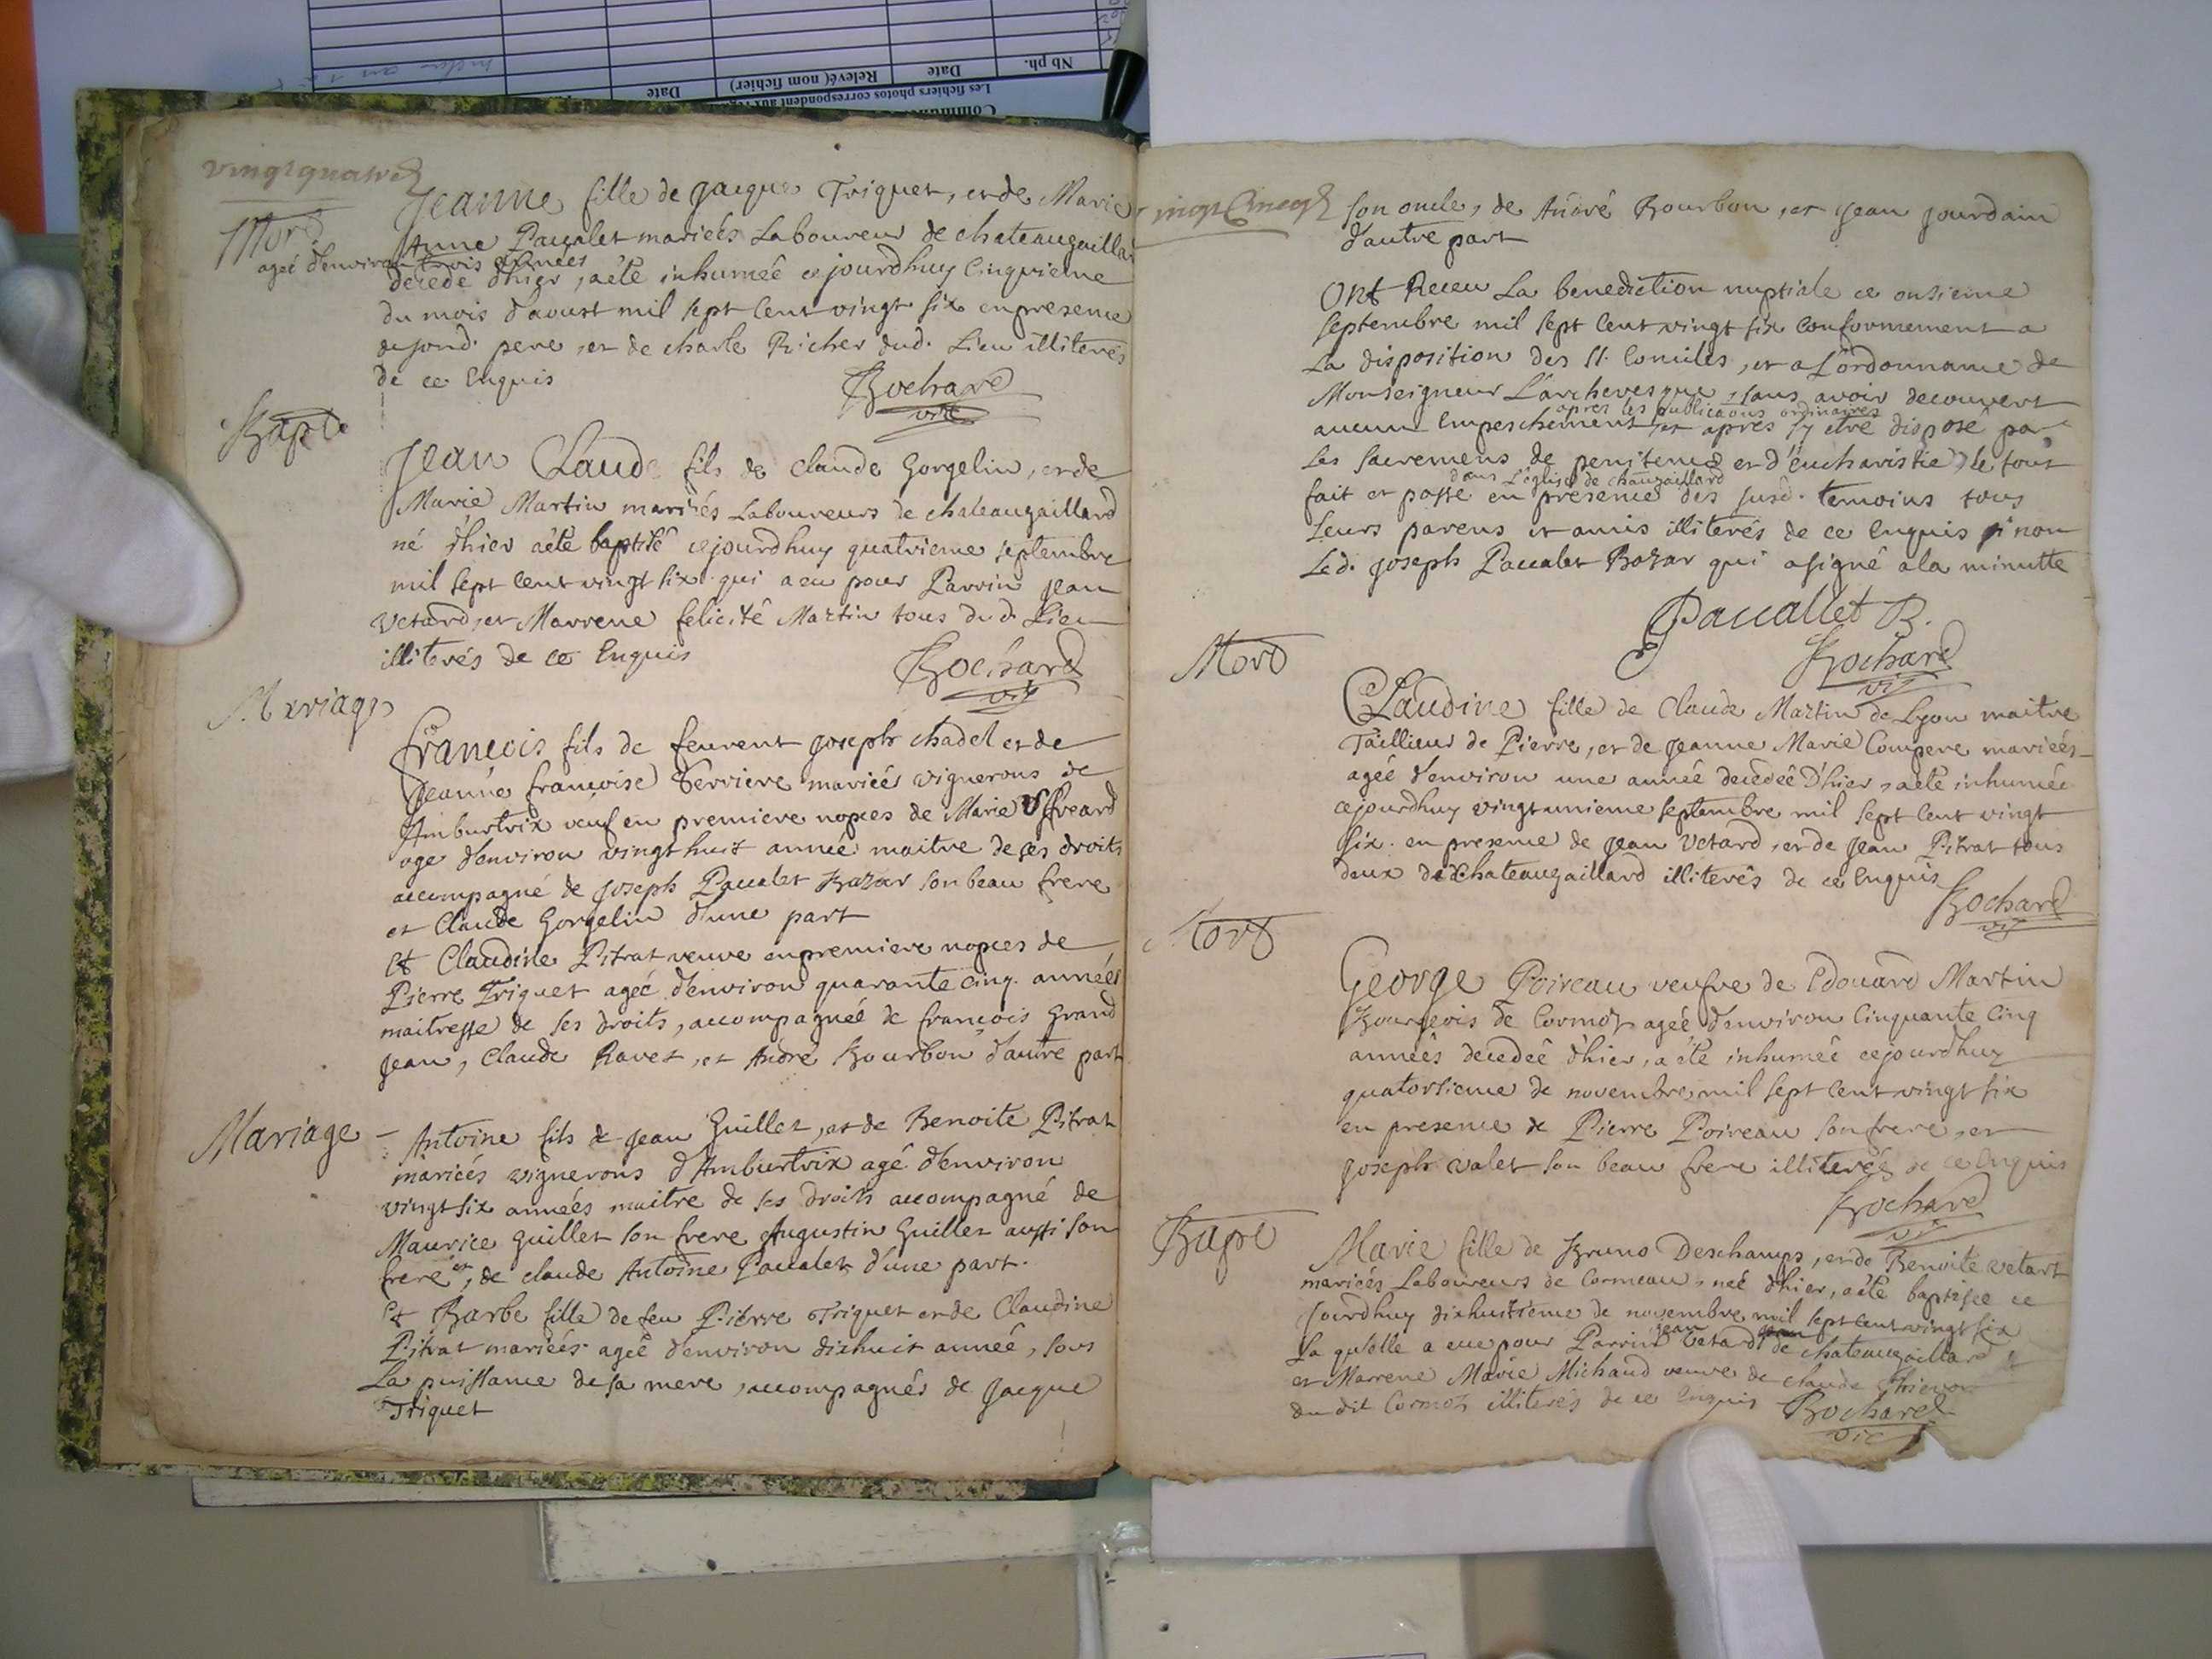 vingt quatre
Mord
Jeanne fille de Jacque Triquet, et de Marie
Anne Paccalet mariées Laboureur de chateaugaillar
ageé d'environ trois années
decedé d'hier, a êté inhumeê cejourdhuy Cinquieme
du mois d'aoust mil sept cent vingt six en presence
de sond. pere, et de charle Richer dud. Lieu illiterés
de ce Enquis
Bochard
vire
Bapt
Jean Claude fils de Claude Gorgelin, et de
Marie Martin mariés Laboureurs de chateaugaillard
né d'hier a êté baptisé cejourdhuy quatrieme septembre
mil sept cent vingt six qui a eu pour Parrin Jean
Vetard, et Marrene felicité Martin tous dud. Lieu
illiterés de ce Enquis
Bochard
vic
Mariage
françois fils de feurent Joseph chadel et de
Jeanne françoise Ferriere mariés vignerons de
Amburtrix veuf en premiere nopces de Marie Uffreard
age d'environ vingt huit année maitre de ses droits
accompagné de Joseph Paccalet Bazar son beau frere
et Claude Gorgelin d'une part
Et Claudine Pitrat veuve en premiere nopces de
Pierre Triquet ageé d'environ quarante cinq années
maitresse de ses droits, accompagnéé de françois Grand
Jean, Claude Ravet, et André Bourbon d'autre part
Mariage
Antoine fils de Jean Guillet, et de Benoite Pitrat
mariés vignerons d'Amburtrix agé d'environ
vingt six années maitre de ses droits accompagné de
Maurice Guillet son frere Augustin Guillet aussi son
frere et, de claude Antoine Paccalet d'une part.
Et Barbe fille de feu Pierre Triquet et de Claudine
Pitrat mariées ageé d'environ dixhuit année, sous
La puissance de sa mere, accompagnés de Jacque
Triquet
vingt Cineq
son oncle, de André Bourbon, et Jean Jourdain
d'autre part
Ont Receu La benediction nuptiale ce onsieme
septembre mil sept cent vingt six conformement a
La disposition des SS. Conciles, et a L'ordonnance de
Monseigneur L'archevesque, sans avoir decouvert
apres les publicaons ordinaires
aucun Empeschement, et apres s'y etre disposé par
Les sacremens de penitence et d'eucharistie, le tout
dans L'eglise de chaugaillard
fait et passé en presence des susd. temoins tous
Leurs parens et amis illiterés de ce Enquis si non
Led. Joseph Paccalet Bazar qui a signé a la minutte
J Paccallet B.
Bochard
vic
Mord
Claudine fille de Claude Martin de Lyon maitre
Taillieur de Pierre, et de Jeanne Marie Compere mariées
ageé d'environ une année decedeê D'hier, a êté inhumée
cejourdhuy vingtunieme septembre mil sept cent vingt
six. en presence de Jean Vetard, et de Jean Pitrat tous
deux de Chateaugaillard illiterês de ce Enquis
Bochard
vic
Mord
George Poireau veufve de Edouard Martin
Bourgeois de Cormoz ageé d'environ Cinquante Cinq
années decedeê d'hier, a êté inhumeê cejourdhuy
quatorsieme de novembre mil sept cent vingt six
en presence de Pierre Poireau son frere, et
Joseph valet son beau frere illiterés de ce Enquis
Bochard
vic
Bapt
Marie fille de Bruno Deschamps, et de Benoite vetart
mariés Laboureurs de Cormeau, neé d'hier, a êté baptisee ce
Jourdhuy dixhuitieme de novembre mil sept cent vingt six
La quelle a eue pour Parrin Jean Vetard de chateaugaillard
et Marrene Marie Michaud veuve de claude
du dit Cormoz illiterés de ce Enquis
Bochard
vic
Nb ph.
Date
Relevé( nom fichier)
Date
Les fichiers photos correspondent aux